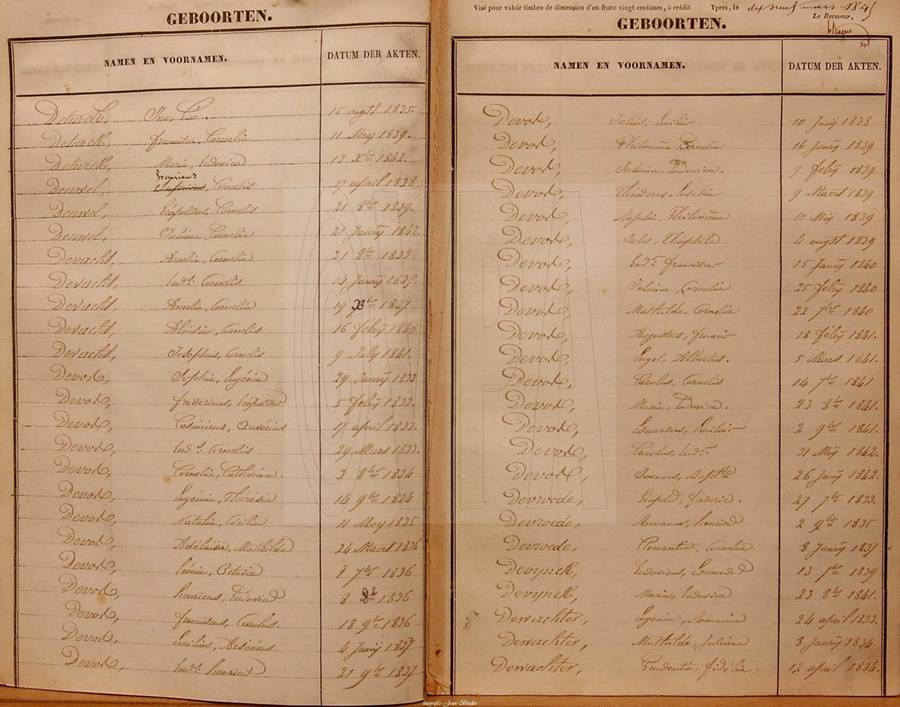 GEBOORTEN.
NAMEN EN VOORNAMEN. DATUM DER AKTEN.
Deturck, 15 augst 1835.
Deturck, Franciscus, Cornelis 11 Mey 1839.
Deturck, Maria, Ludovica 13 Xbre 1842.
Deurwel, Henricus, Cornelis 17 april 1838
Deurwel, Leopoldus, Cornelis 21 8bre 1839.
Deurwel, Juliana, Cornelia 21 Januy 1842.
Devacht, Amelia, Cornelia 21 8bre 1833.
Devacht, Lud: Cornelis 14 Januy
Devacht, Amelia, Cornelia 19 Xbre 1837
Devacht, Aloisius, Cornelis 16 febry 1840
Devacht, Josephus, Cornelis 9 July 1841.
Devos, Sophia, Eugénia 29 Januy 1833
Devos, Fredericus, Leopoldus 5 febry 1833.
Devos, Casimirus, 17 april 1833.
Devos, Lud: Cornelis 29 Mars 1833.
Devos, Cornelia, Catharina. 3 8bre 1834
Devos, Eugenia, Thérésia 14 9bre 1834
Devos, Natalia, Cécilia 11 Mey 1835
Devos, Adélaïde, Mathilde 24 Maert 1836
Devos, Léonia, Octavia 8 7bre 1836
Devos, Henricus, Ludovicus 8 8bre 1836
Devos, Franciscus, Carolus. 18 9bre 1836
Devos, Emilius, 4 Juny 1837
Devos, Lud: Henricus 21 9bre 1837
Visé pour valoir timbre de dimension d'un franc vingt centimes, à crédit Ypres, le dix neuf mars 1845
Le Receveur,
GEBOORTEN.
NAMEN EN VOORNAMEN. DATUM DER AKTEN.
Devos, Julius, Emilius 10 Juny 1838
Devos, Philomena, Cornelia 16 Januy 1839
Devos, Juliana, Ludovica. 9 febry 1839
Devos, Theodorus, 9 Maert 1839
Devos, Sophia, Philomena 10 Mey 1839
Devos, Julius, Théophile 4 augst 1839
Devos, Lud: Franciscus 15 Januy 1840
Devos, Juliana, Cornelia 25 febry 1840
Devos, Mathilde, Cornelia 22 7bre 1840
Devos, Augustus, Francis 18 febry 1841.
Devos, Engel, Albertus. 5 Maert 1841.
Devos, Carolus, Cornelis 14 7bre 1841
Devos, Maria, Ludovica. 23 8bre 1841.
Devos, Eduardus, Emilius 2 9bre 1841.
Devos, Carolus, Lud: 31 Mey 1842.
Devos, Joannes, Baptte 26 Juny 1842.
Devrede, Leopold, Frederic. 27 7bre 1833.
Devrede, Hermanus, Henricus 2 9bre 1835
Devrede, Clementia, Amelia 8 Januy 1837
Devynck, Ludovicus, Edmond 13 7bre 1839
Devynck, Maria, Ludovica 23 8bre 1841.
Dewachter, Eugenia, 24 april 1833.
Dewachter, Mathilde, Juliana 3 Januy 1834
Dewachter, Prudentia, Fidélia. 12 april 1836.